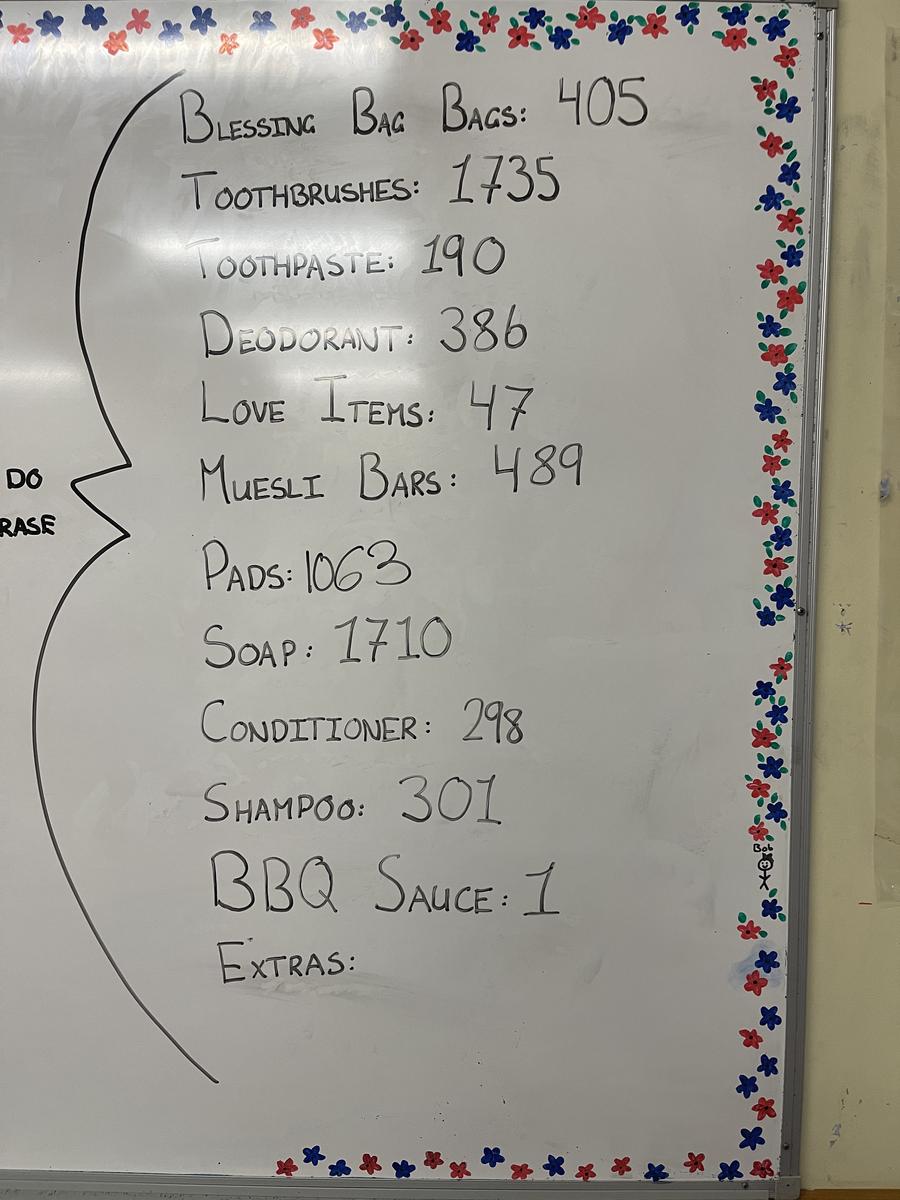 BLESSING BAG BAGS: 405
TOOTHBRUSHES: 1735
TOOTHPASTE: 190
DEODORANT: 386
LOVE ITEMS: 47
MUESLI BARS: 489
DO
RASE
PADS: 1063
SOAP: 1710
CONDITIONER: 298
SHAMPOO: 301
BBQ SAUCE: 1
Bob
EXTRAS: